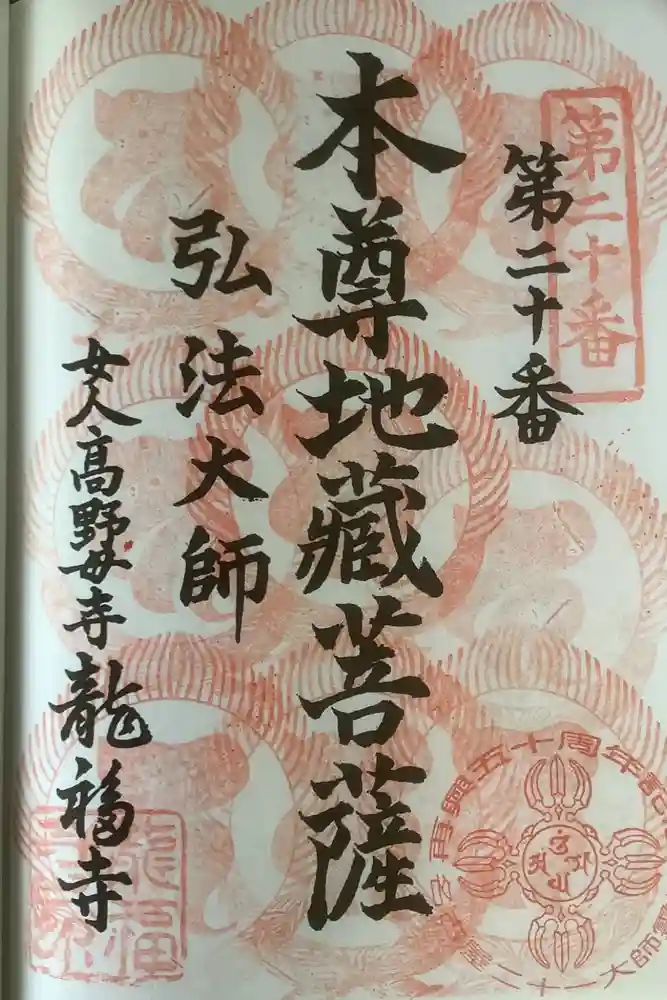 第二十番
第二十番
本尊地藏菩薩
弘法大師
女人高野母寺龍福寺
再興五十周年記
二十一大師
龍福